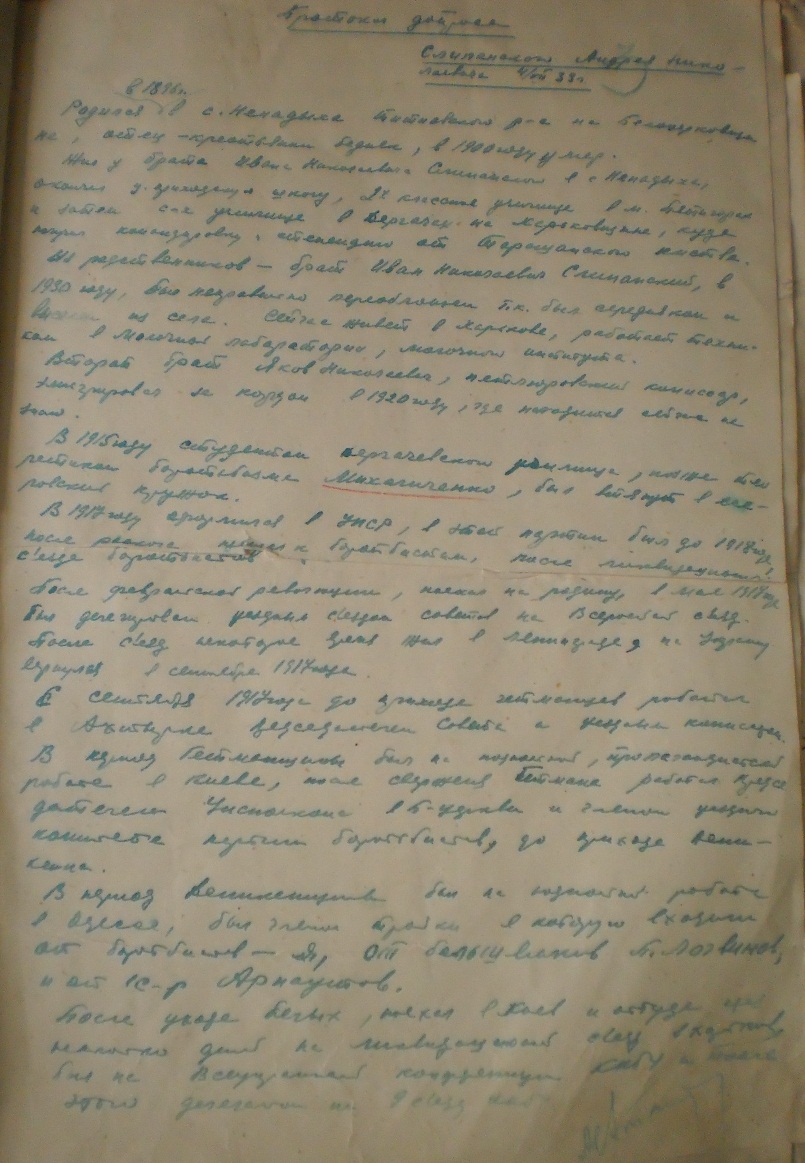 Протокол допроса
Слипанского Андрея Нико-
лаевича
в 1896 г.
Родился в с. Ненадыха Тетиевского р-а на Белоцерковщи
не, отец - крестьянин бедняк, в 1900 году умер.
Жил у брата Ивана Николаевича Слипанского в с Ненадыха,
окончил ц. приходскую школу, 2х классное училище в м. Пятигорах
и затем с-х училище в Дергачах на Харьковщине, куда
получил командировку и стипендию от Таращанского земства.
Из родственников - брат Иван Николаевич Слипанский, в
1930 году, был неправильно переобложен т.к. был середняком и
выслан из села. Сейчас живет в Харькове, работает техни-
ком в Молочной лаборатории, молочного института.
Второй брат Яков Николаевич, петлюровский комиссар,
эмигрировал за кордон в 1920 году, где находится сейчас не
знаю.
В 1915 году студентом Дергачевского училища, позже был
боротьбистом Михайличенко, был втянут в эсе-
ровский кружок.
В 1917 году оформился в УПСР, в этой партии был до 1918 года,
после раскола пришел к боротьбистам, после ликвидационного
съезда боротьбистов
После февральской революции, поехал на родину, в мае 1917 года
был делегирован уездным съездом советов на Всеросийский съезд.
После съезда некоторое время жил в Ленинграде, на Украину
вернулся в сентябре 1917 года.
С сентября 1917 года до прихода гетманцев работал
в Ахтырке председателем Совета и уездным комиссаром.
В период Гетманщины был на подпольной, пропагандистской
работе в Киеве, после свержения Гетмана работал предсе
дателем Исполкома в Б-Церкви и членом уездного
комитета партии боротьбистов, до прихода Дени-
кина.
В период Деникинщины был на подпольной работе
в Одессе, был членом тройки в которую входили
от боротьбистов - Я, от большевиков П. Логвинов,
и от ЛС-р Арнаутов.
После ухода белых, поехал в Киев и оттуда через
несколько дней на ликвидационный съезд в Харьков,
был на Всеукраинской конференции КПбУ и после
этого делегатом на 9 съезд